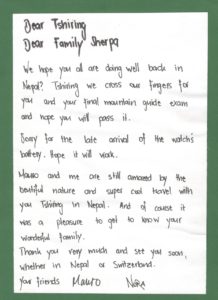 Dear Tshiring
Dear Family Sherpa
We hope you all are doing well back in
Nepal? Tshiring we cross our fingers for
you and your final mountain guide exam
and hope you will pass it.
Sorry for the late arrival of the watch's
battery. Hope it will work.
Mauro and me are still amazed by the
beutiful nature and super cool travel with
you Tshiring in Nepal. And of cause it
was a pleasure to get to know your
wonderful family.
Thank you very much and see you soon,
whether in Nepal or Switzerland.
Your friends Mauro Nora